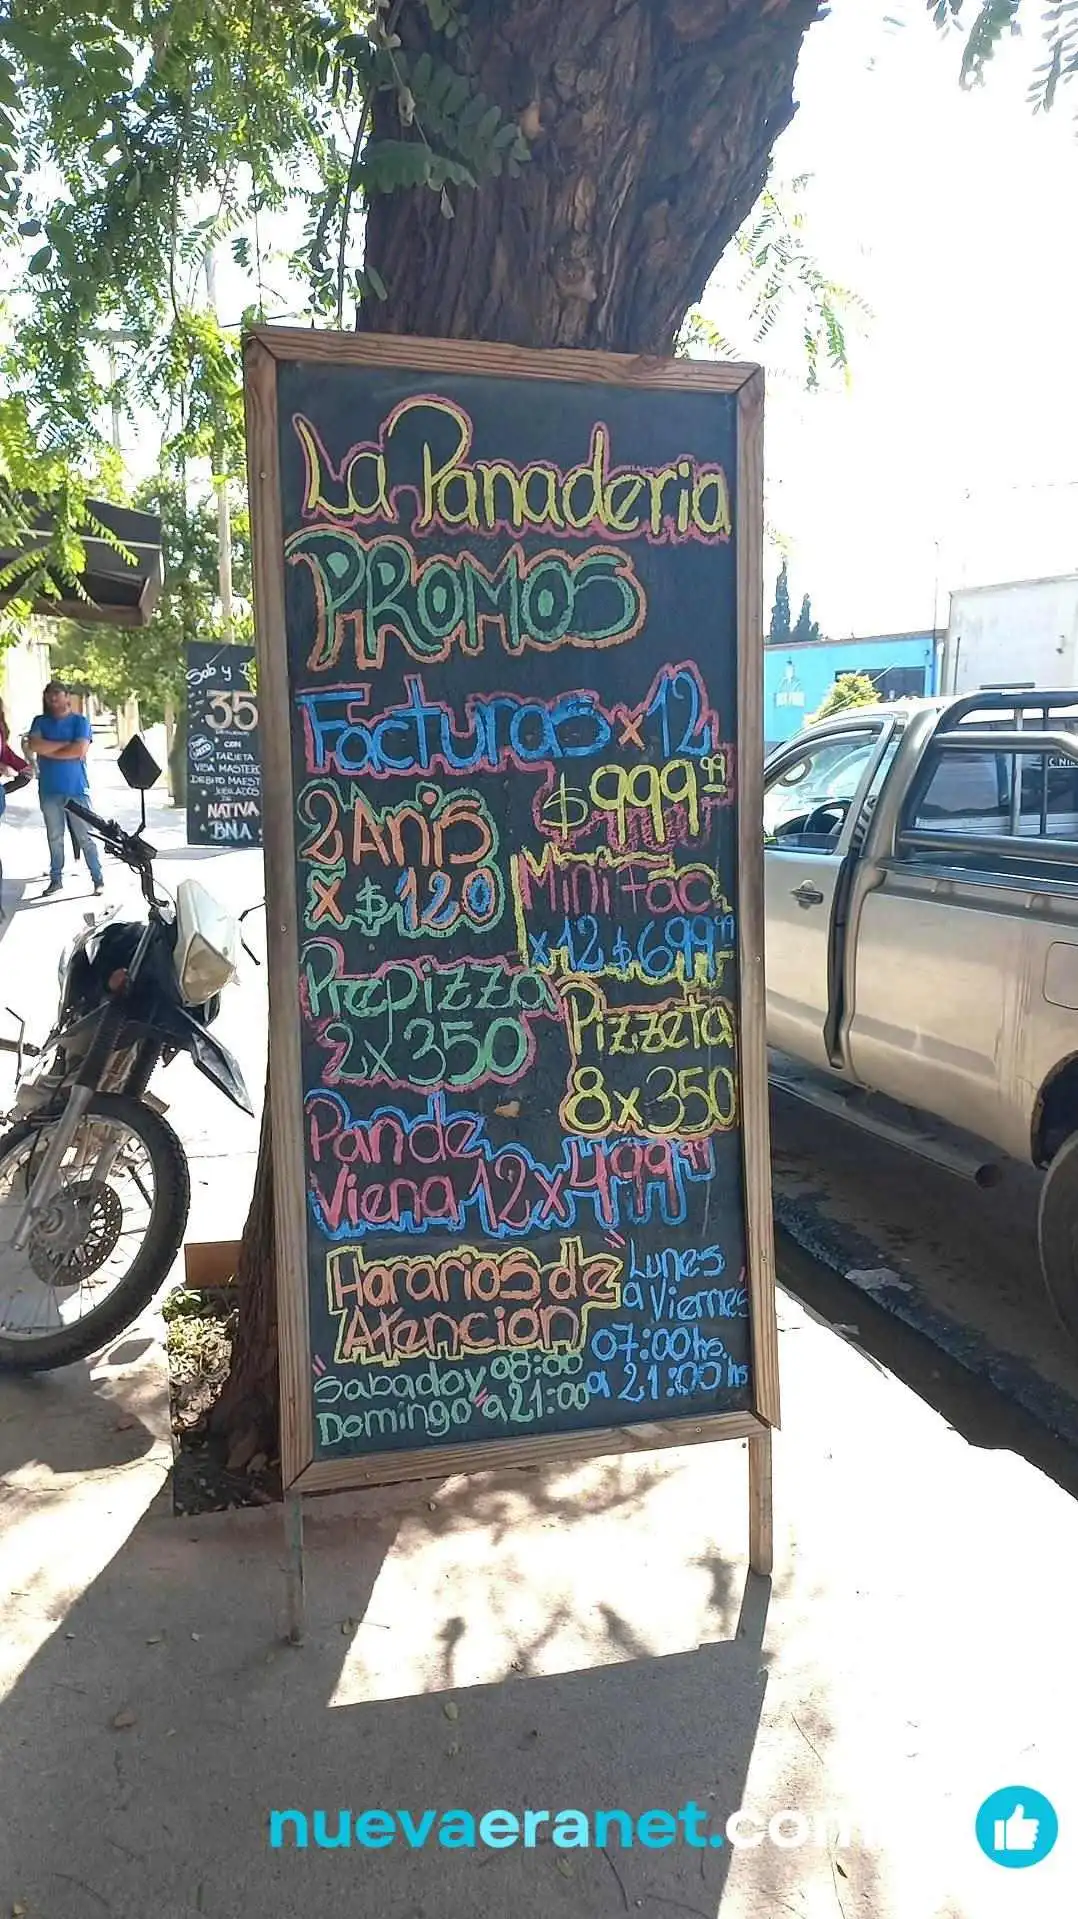 La Panaderia
PROMOS
Facturas x 12
$ 999⁹⁹
2 Anis
x $ 120
Mini Fac
x 12 $ 699⁹⁹
Prepizza
2 x 350
Pizzeta
8 x 350
Pan de
Viena 12 x 499⁹⁹
Horarios de
Atención
Lunes
a Viernes
07:00hs.
a 21:00 hs
Sabado y
Domingo
08:00
a 21:00
Sab y
35
CON
TARJETA
VISA MASTERC
DEBITO MAEST
JUBILADOS
NATIVA
BNA
nuevaeranet.com